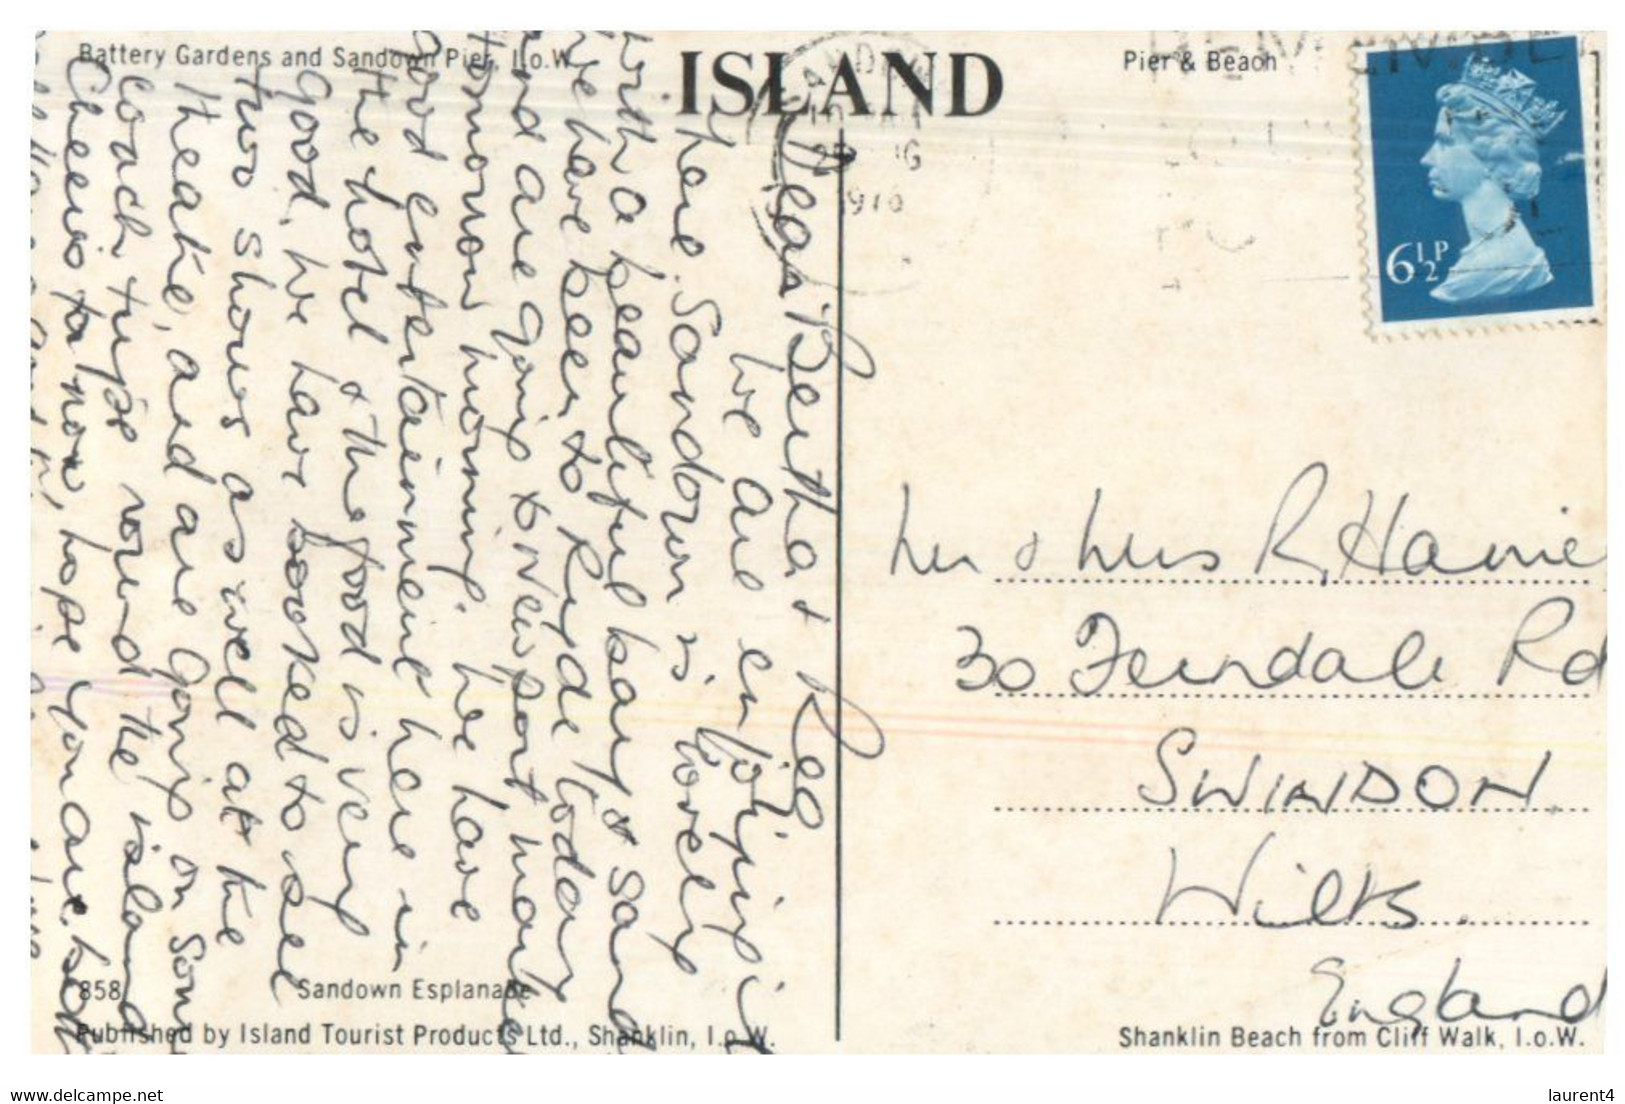 Battery Gardens and Sandown Pier, I.o.W.
ISLAND
Pier & Beach
1976
6½P
Dear Bertha & Reg
We are enjoying
here. Sandown is lovely
with a beautiful bay & sand
we have been to Ryde today
and are going to Newport
tomorrow morning. we have
good entertainment here in
the hotel & the food is very
Good, we have booked to see
two shows as well at the
theatre, and are going on some
coach trips round the island
Cheerio for now, hope you are both
Mr & Mrs R. Harvie
30 Ferndale Rd
SWINDON.
Wilts.
England
858
Sandown Esplanade
Published by Island Tourist Products Ltd., Shanklin, I.o.W.
Shanklin Beach from Cliff Walk, I.o.W.
www.delcampe.net
laurent4